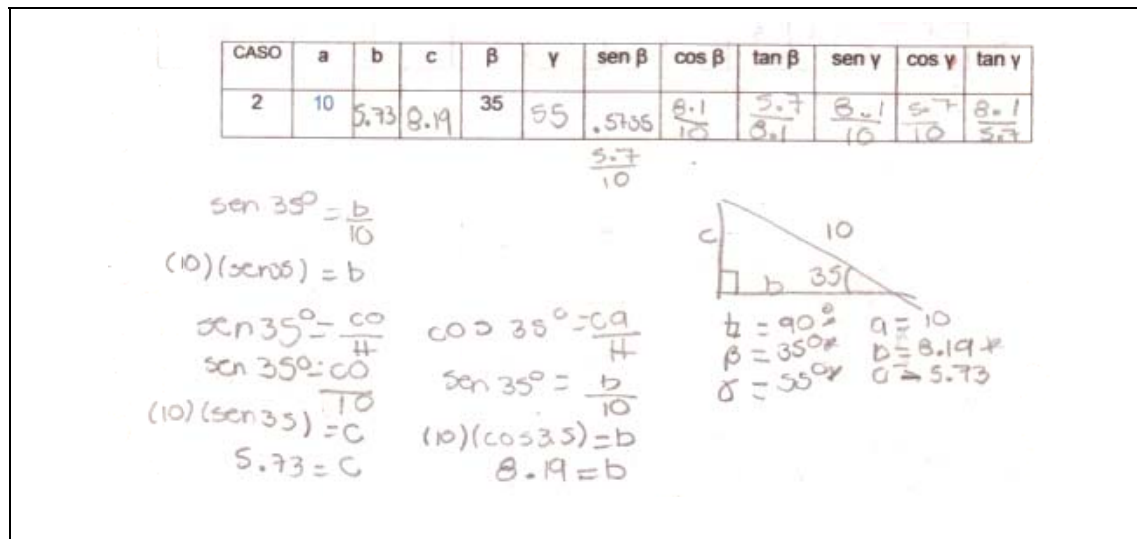 CASO a b c β γ sen β cos β tan β sen γ cos γ tan γ
2 10 5.73 8.19 35 55 .5735 8.1/10 5.7/8.1 8.1/10 5.7/10 8.1/5.7
5.7/10
sen 35° = b/10
(10)( ) = b
sen 35° = co/H
sen 35° = co/10
(10)(sen 35) = c
5.73 = c
cos 35° = ca/H
sen 35° = b/10
(10)(cos 35) = b
8.19 = b
c 10
b 35
= 90° a = 10
β = 35° b = 8.19
γ = 55° c = 5.73